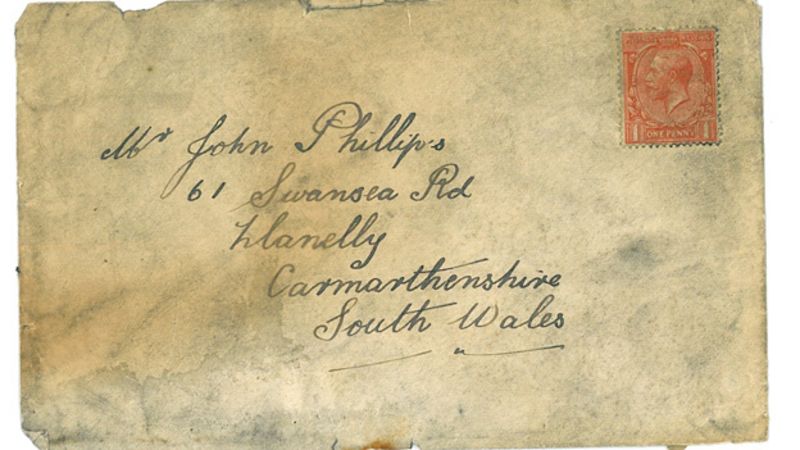 Mr John Phillips
61 Swansea Rd
Llanelly
Carmarthenshire
South Wales
1 ONE PENNY 1